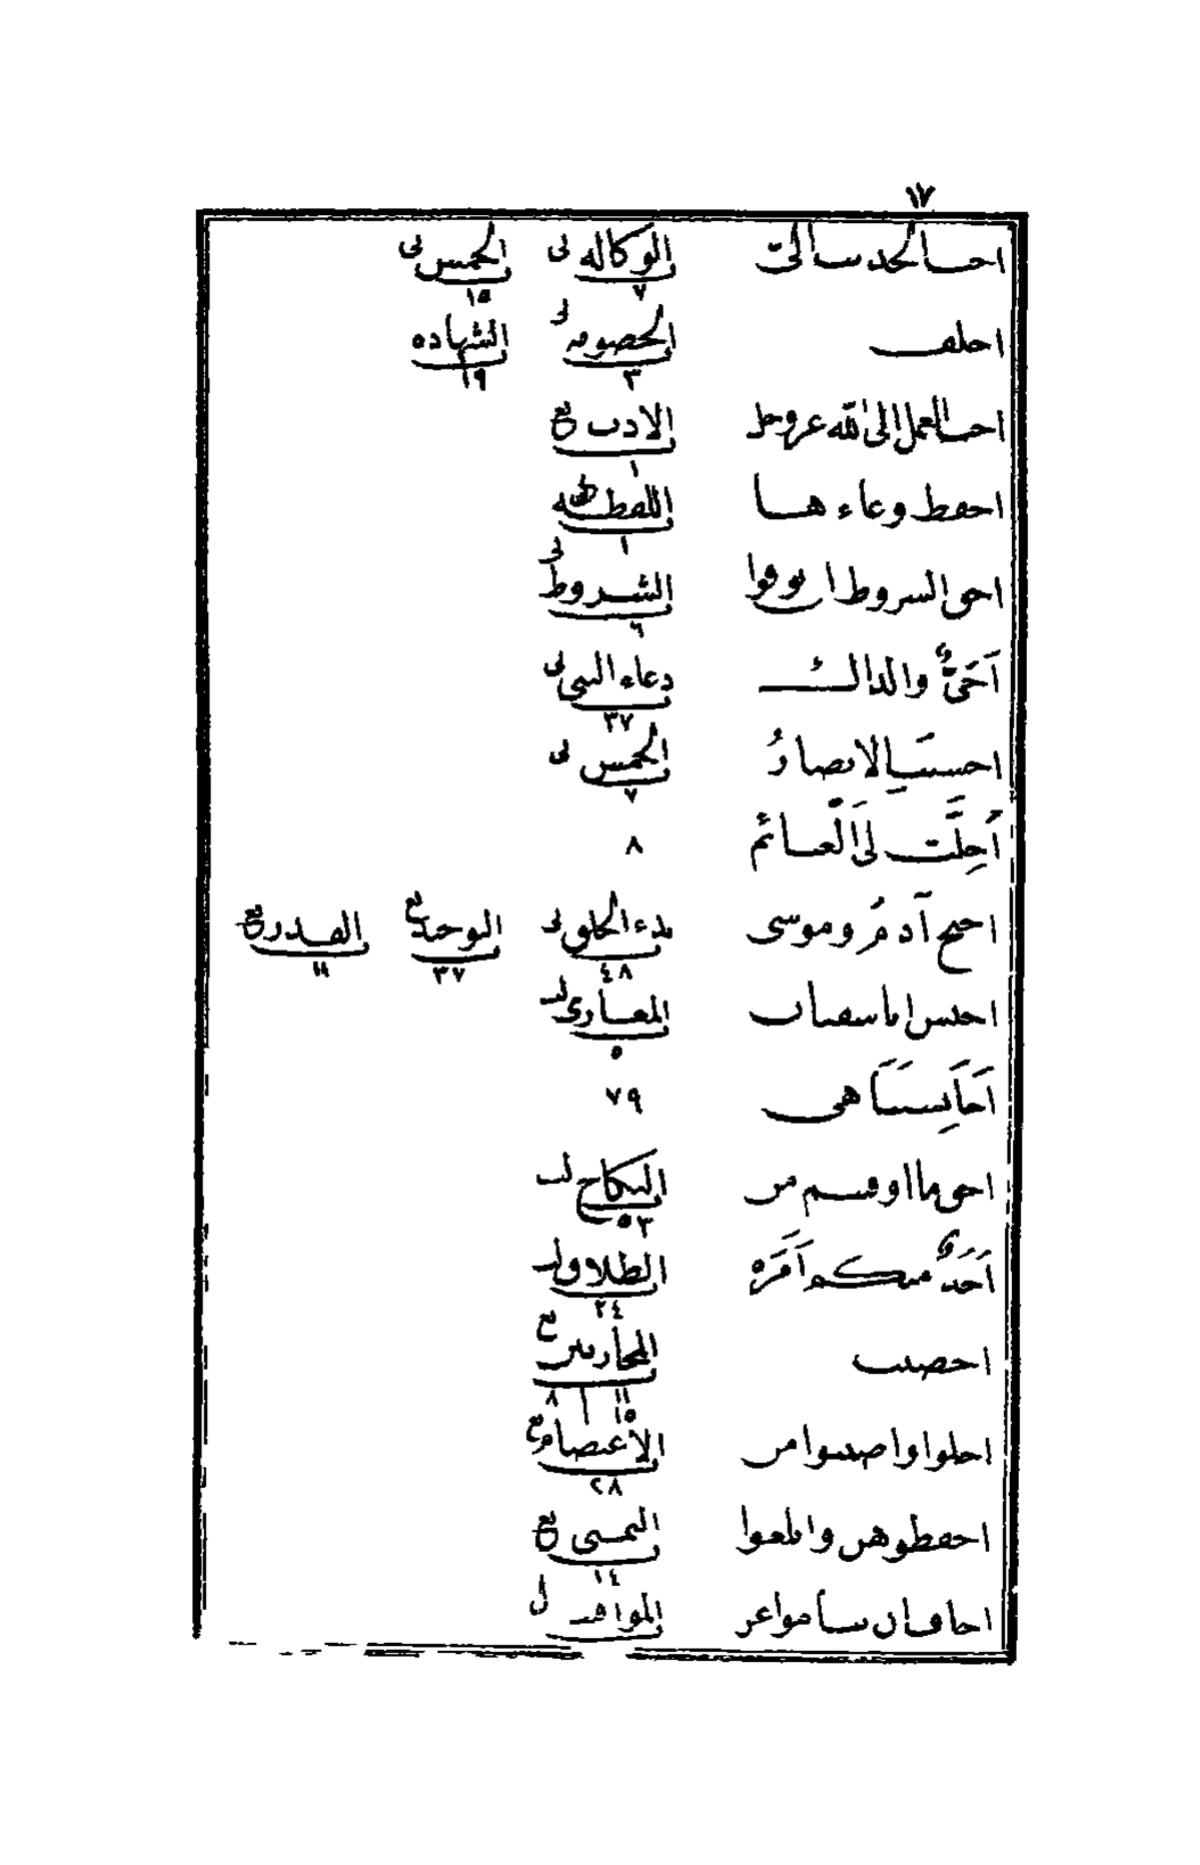 ١٧
احب الحديث الىّ الوكاله لى الخمس لى
٧ ١٥
احلف الخصومه لى الشهاده
٣ ١٩
احب العمل الى الله عز وجل الادب ع
١
احفظ وعاءها اللقطه
١
احق الشروط ان توفوا الشروط لى
٦
اَحَىٌّ والداك دعاء النبى لى
٣٧
احسنَتِ الانصارُ الخمس لى
٧
اُحِلَّت لىَ الغنائم ٨
احتج آدمُ وموسى بدء الخلق لى التوحيد ع القدر ع
٤٨ ٣٧ ١١
احبس اباسفيان المغازى
٥
اَحَابِسَتنَا هى ٧٩
احق ما اوفيتم من النكاح
٥٣
اَحَدٌ منكم اَمَرَه الطلاق
٢٤
احصنت المحاربين ع
٨ ١١
١٥
احلوا واصيبوا من الاعتصام ع
٢٨
احفظوهن وابلغوا التمنى ع
١٤
المواقيت ل